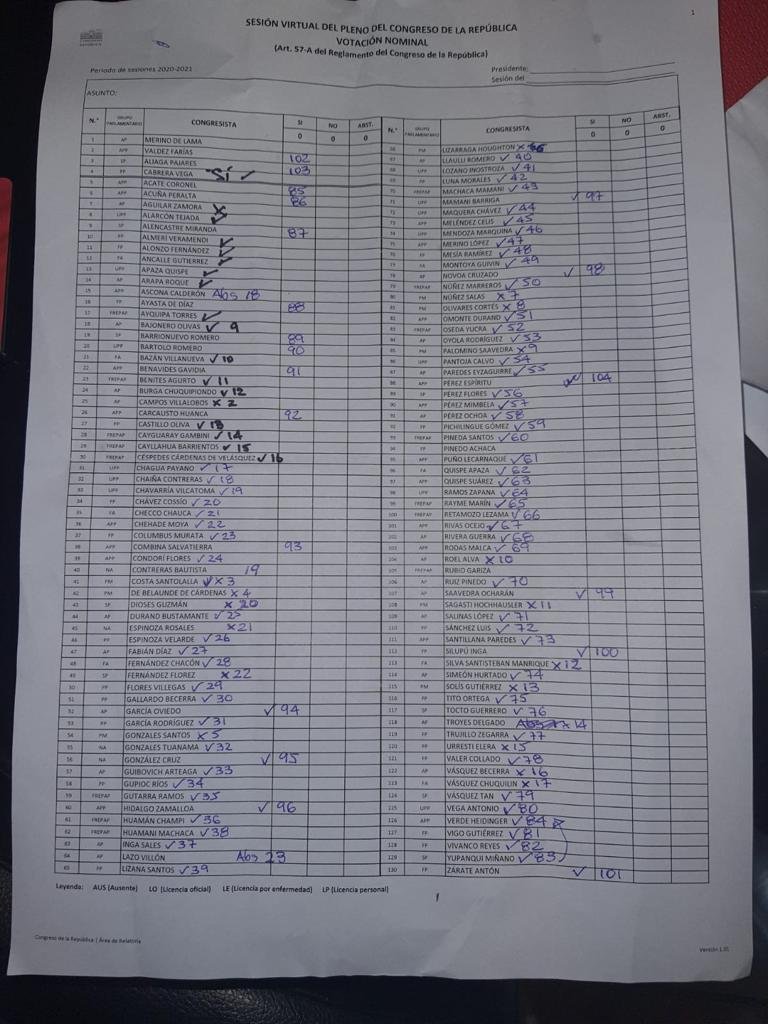 1
SESIÓN VIRTUAL DEL PLENO DEL CONGRESO DE LA REPÚBLICA
VOTACIÓN NOMINAL
(Art. 57-A del Reglamento del Congreso de la República)
Periodo de sesiones 2020-2021
Presidente:
Sesión del
ASUNTO:
N.° GRUPO PARLAMENTARIO CONGRESISTA SI NO ABST.
0 0 0
1 AP MERINO DE LAMA
2 APP VALDEZ FARÍAS
3 SP ALIAGA PAJARES 102
4 FP CABRERA VEGA SÍ ✓ 103
5 APP ACATE CORONEL
6 APP ACUÑA PERALTA 85
7 AP AGUILAR ZAMORA 86
8 UPP ALARCÓN TEJADA ✓
9 SP ALENCASTRE MIRANDA 87
10 FP ALMERÍ VERAMENDI ✓
11 FP ALONZO FERNÁNDEZ ✓
12 FA ANCALLE GUTIERREZ ✓
13 UPP APAZA QUISPE ✓
14 AP ARAPA ROQUE ✓
15 APP ASCONA CALDERÓN Abs 18
16 FP AYASTA DE DÍAZ 88
17 FREPAP AYQUIPA TORRES ✓
18 AP BAJONERO OLIVAS ✓ 9
19 SP BARRIONUEVO ROMERO 89
20 UPP BARTOLO ROMERO 90
21 FA BAZÁN VILLANUEVA ✓ 10
22 APP BENAVIDES GAVIDIA 91
23 FREPAP BENITES AGURTO ✓ 11
24 AP BURGA CHUQUIPIONDO ✓ 12
25 AP CAMPOS VILLALOBOS x 2
26 APP CARCAUSTO HUANCA 92
27 FP CASTILLO OLIVA ✓ 13
28 FREPAP CAYGUARAY GAMBINI ✓ 14
29 FREPAP CAYLLAHUA BARRIENTOS ✓ 15
30 FREPAP CÉSPEDES CÁRDENAS DE VELÁSQUEZ ✓ 16
31 UPP CHAGUA PAYANO ✓ 17
32 UPP CHAIÑA CONTRERAS ✓ 18
33 UPP CHAVARRÍA VILCATOMA ✓ 19
34 FP CHÁVEZ COSSÍO ✓ 20
35 FA CHECCO CHAUCA ✓ 21
36 APP CHEHADE MOYA ✓ 22
37 FP COLUMBUS MURATA ✓ 23
38 APP COMBINA SALVATIERRA 93
39 APP CONDORÍ FLORES ✓ 24
40 NA CONTRERAS BAUTISTA 19
41 PM COSTA SANTOLALLA x 3
42 PM DE BELAUNDE DE CÁRDENAS x 4
43 SP DIOSES GUZMÁN x 20
44 AP DURAND BUSTAMANTE ✓ 25
45 NA ESPINOZA ROSALES x 21
46 PP ESPINOZA VELARDE ✓ 26
47 AP FABIÁN DÍAZ ✓ 27
48 FA FERNÁNDEZ CHACÓN ✓ 28
49 SP FERNÁNDEZ FLOREZ x 22
50 PP FLORES VILLEGAS ✓ 29
51 PP GALLARDO BECERRA ✓ 30
52 AP GARCÍA OVIEDO ✓ 94
53 PP GARCÍA RODRÍGUEZ ✓ 31
54 PM GONZALES SANTOS x 5
55 NA GONZALES TUANAMA ✓ 32
56 NA GONZÁLEZ CRUZ ✓ 95
57 AP GUIBOVICH ARTEAGA ✓ 33
58 PP GUPIOC RÍOS ✓ 34
59 FREPAP GUTARRA RAMOS ✓ 35
60 APP HIDALGO ZAMALLOA ✓ 96
61 FREPAP HUAMÁN CHAMPI ✓ 36
62 FREPAP HUAMANI MACHACA ✓ 38
63 AP INGA SALES ✓ 37
64 AP LAZO VILLÓN Abs 23
65 PP LIZANA SANTOS ✓ 39
N.° GRUPO PARLAMENTARIO CONGRESISTA SI NO ABST.
0 0 0
66 PM LIZÁRRAGA HOUGHTON x
67 AP LLAULLI ROMERO ✓ 40
68 UPP LOZANO INOSTROZA ✓ 41
69 FP LUNA MORALES ✓ 42
70 FREPAP MACHACA MAMANI ✓ 43
71 UPP MAMANI BARRIGA ✓ 97
72 UPP MAQUERA CHÁVEZ ✓ 44
73 APP MELÉNDEZ CELIS ✓ 45
74 UPP MENDOZA MARQUINA ✓ 46
75 APP MERINO LÓPEZ ✓ 47
76 FP MESÍA RAMÍREZ ✓ 48
77 FA MONTOYA GUIVIN ✓ 49
78 AP NOVOA CRUZADO ✓ 98
79 FREPAP NÚÑEZ MARREROS ✓ 50
80 PM NÚÑEZ SALAS x 7
81 PM OLIVARES CORTÉS x 8
82 APP OMONTE DURAND ✓ 51
83 FREPAP OSEDA YUCRA ✓ 52
84 AP OYOLA RODRÍGUEZ ✓ 53
85 PM PALOMINO SAAVEDRA x 9
86 UPP PANTOJA CALVO ✓ 54
87 AP PAREDES EYZAGUIRRE ✓ 55
88 APP PÉREZ ESPÍRITU ✓ 104
89 SP PÉREZ FLORES ✓ 56
90 APP PÉREZ MIMBELA ✓ 57
91 AP PÉREZ OCHOA ✓ 58
92 FP PICHILINGUE GÓMEZ ✓ 59
93 FREPAP PINEDA SANTOS ✓ 60
94 FP PINEDO ACHACA
95 APP PUÑO LECARNAQUE ✓ 61
96 FA QUISPE APAZA ✓ 62
97 APP QUISPE SUÁREZ ✓ 63
98 UPP RAMOS ZAPANA ✓ 64
99 FREPAP RAYME MARÍN ✓ 65
100 FREPAP RETAMOZO LEZAMA ✓ 66
101 APP RIVAS OCEJO ✓ 67
102 AP RIVERA GUERRA ✓ 68
103 APP RODAS MALCA ✓ 69
104 AP ROEL ALVA x 10
105 FREPAP RUBIO GARIZA
106 AP RUIZ PINEDO ✓ 70
107 AP SAAVEDRA OCHARÁN ✓ 99
108 PM SAGASTI HOCHHAUSLER x 11
109 AP SALINAS LÓPEZ ✓ 71
110 FP SÁNCHEZ LUIS ✓ 72
111 APP SANTILLANA PAREDES ✓ 73
112 FP SILUPÚ INGA ✓ 100
113 FA SILVA SANTISTEBAN MANRIQUE x 12
114 AP SIMEÓN HURTADO ✓ 74
115 PM SOLÍS GUTIÉRREZ x 13
116 FP TITO ORTEGA ✓ 75
117 SP TOCTO GUERRERO ✓ 76
118 AP TROYES DELGADO Abs x 14
119 FP TRUJILLO ZEGARRA ✓ 77
120 FP URRESTI ELERA x 15
121 FP VALER COLLADO ✓ 78
122 AP VÁSQUEZ BECERRA x 16
123 FA VÁSQUEZ CHUQUILIN x 17
124 SP VÁSQUEZ TAN ✓ 79
125 UPP VEGA ANTONIO ✓ 80
126 APP VERDE HEIDINGER ✓ 84
127 FP VIGO GUTIÉRREZ ✓ 81
128 FP VIVANCO REYES ✓ 82
129 SP YUPANQUI MIÑANO ✓ 83
130 FP ZÁRATE ANTÓN ✓ 101
Leyenda: AUS (Ausente) LO (Licencia oficial) LE (Licencia por enfermedad) LP (Licencia personal)
Congreso de la República | Área de Relatoría
Versión 1.01